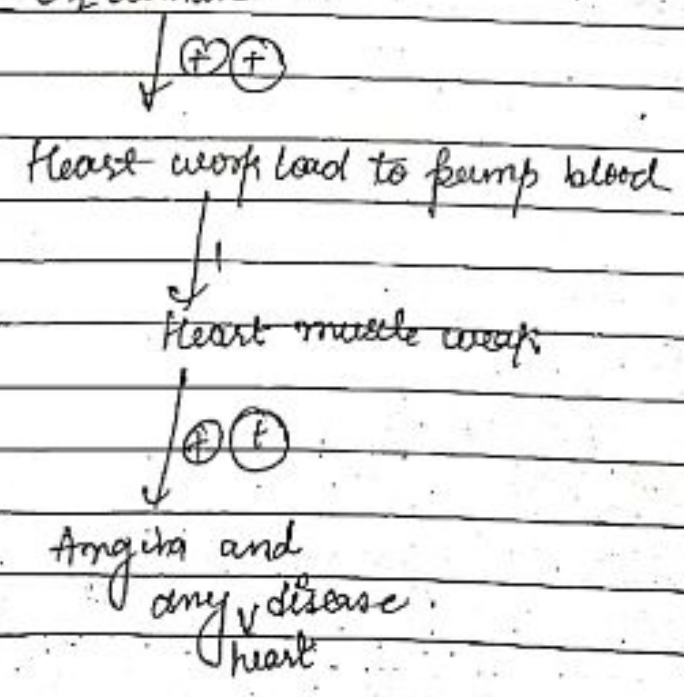 ↓ ⊕⊕
Heart work load to pump blood
↓
Heart muscle weak
↓ ⊕⊕
Angina and
any disease.
heart